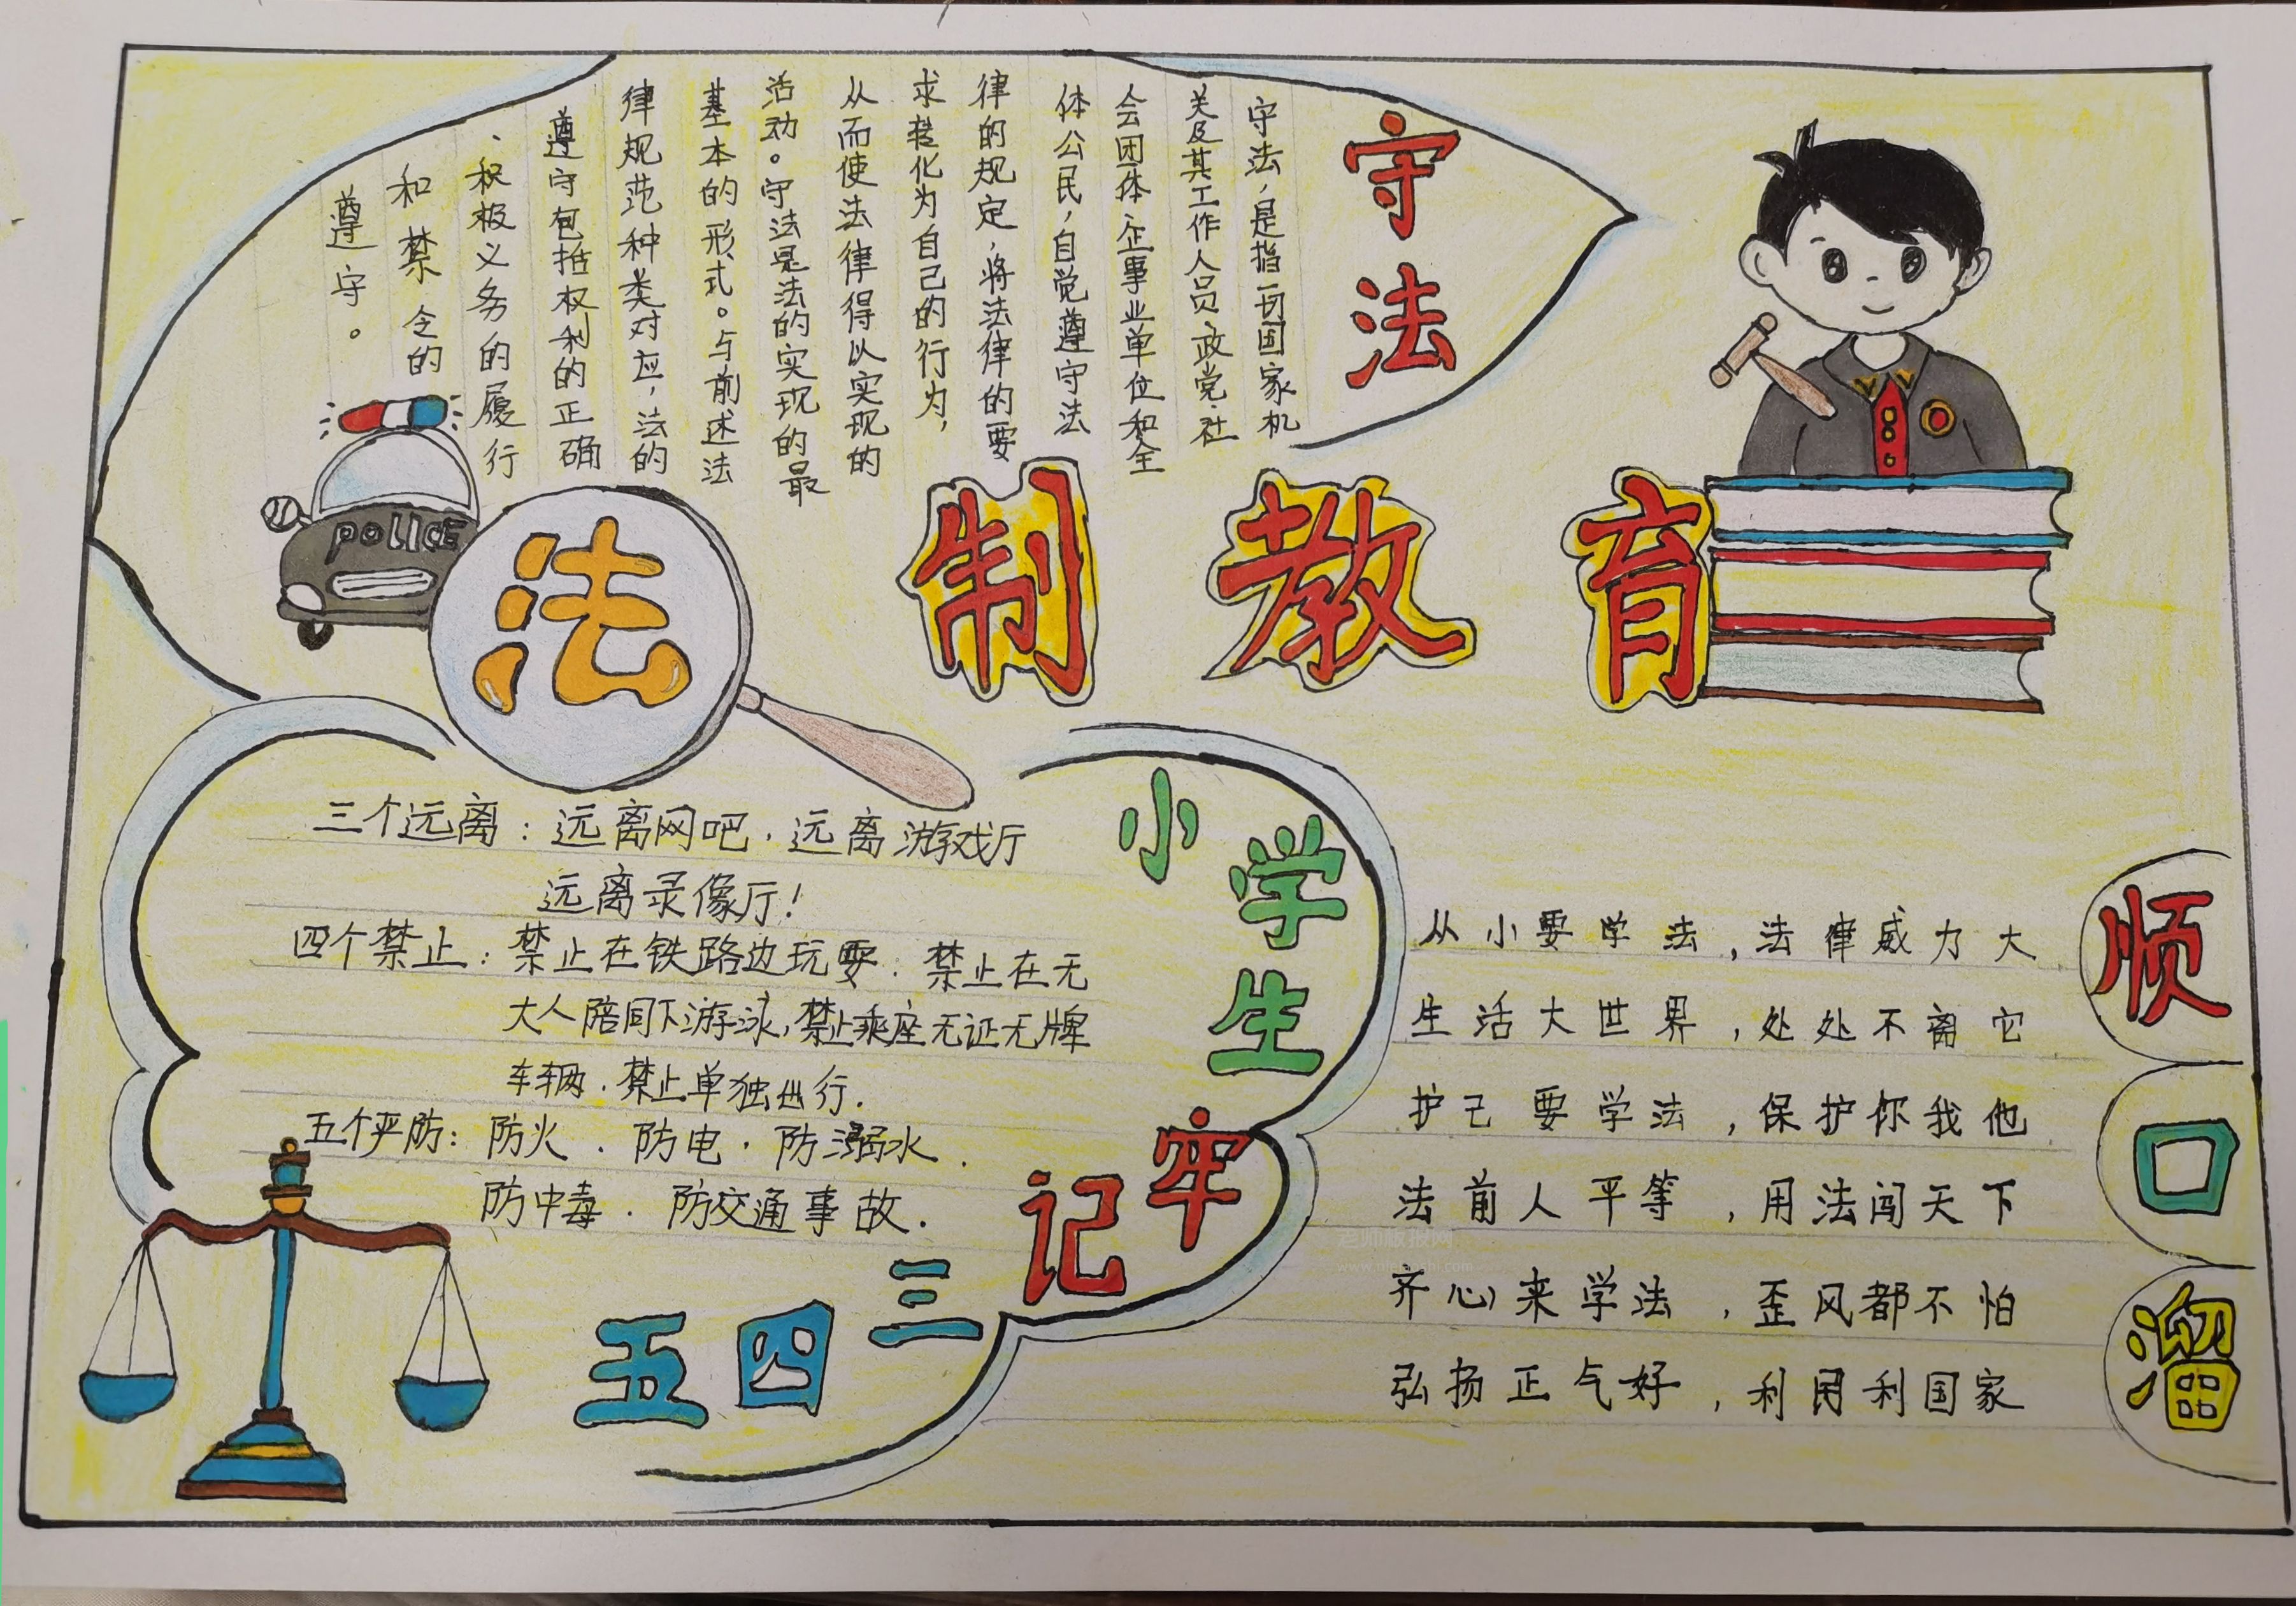 守法
守法，是指一切国家机
关及其工作人员政党社
会团体企事业单位和全
体公民，自觉遵守法
律的规定，将法律的要
求转化为自己的行为，
从而使法律得以实现的
活动。守法是法的实现的最
基本的形式。与前述法
律规范种类对应，法的
遵守包括权利的正确
、积极义务的履行
和禁令的
遵守。
POLICE
法制教育
小学生
牢记
三四五
三个远离：远离网吧，远离游戏厅
远离录像厅！
四个禁止：禁止在铁路边玩耍，禁止在无
大人陪同下游泳，禁止乘座无证无牌
车辆，禁止单独出行.
五个严防：防火．防电．防溺水．
防中毒．防交通事故．
顺口溜
从小要学法，法律威力大
生活大世界，处处不离它
护己要学法，保护你我他
法前人平等，用法闯天下
齐心来学法，歪风都不怕
弘扬正气好，利民利国家
老师板报网